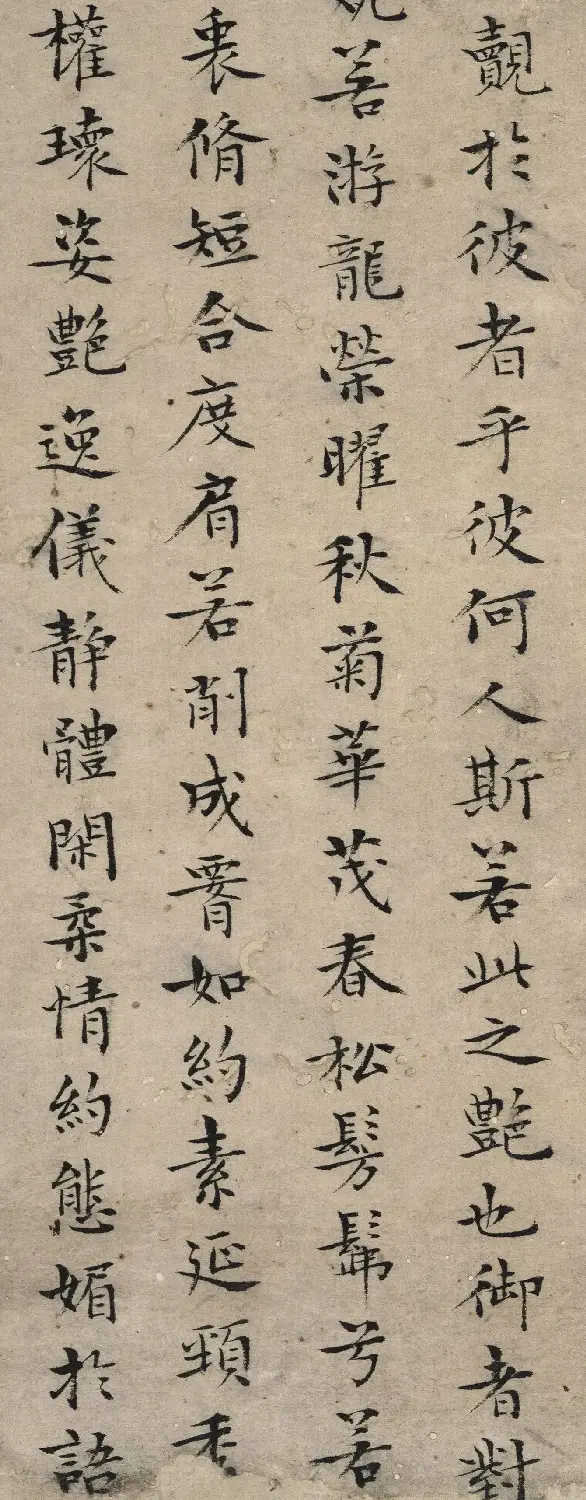 覿於彼者乎彼何人斯若此之艶也御者對
若游龍榮曜秋菊華茂春松髣髴兮若
衷脩短合度肩若削成腰如約素延頸秀
權瓌姿艶逸儀靜體閑柔情約態媚於語